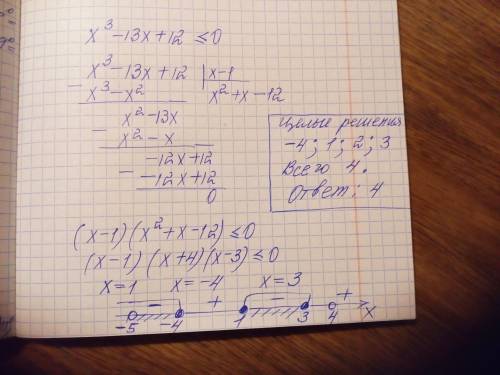 x³ -13x+12 ≤0
x³ -13x+12 | x-1
- x³ - x² x² + x -12
x² -13x
- x² - x
-12x+12
- -12x+12
0
Целые решения
-4; 1; 2; 3
Всего 4.
Ответ: 4
(x-1)(x² +x-12) ≤0
(x-1) (x+4)(x-3) ≤0
x=1 x=-4 x=3
- + - +
-5 -4 1 3 4 x